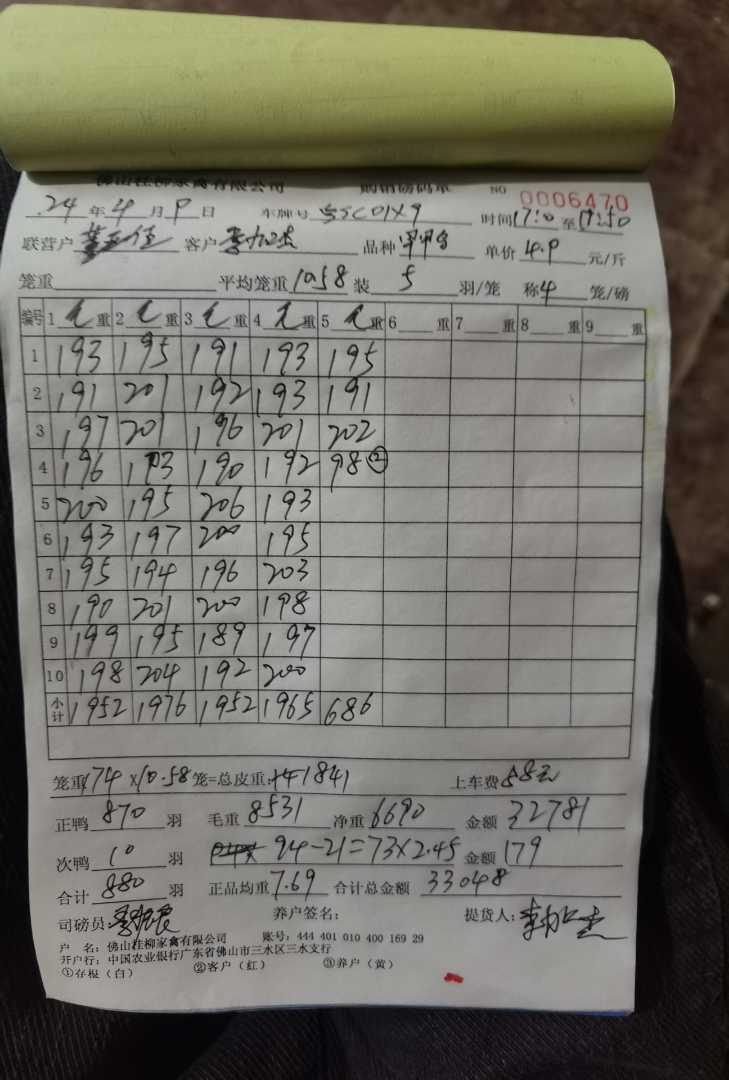 佛山桂柳家禽有限公司 购销磅码单 NO 0006470
24 年 4 月 9 日 车牌号 时间 17:10 至 17:50
联营户 客户 李加杰 品种 单价 4.9 元/斤
笼重 平均笼重 10.58 装 5 羽/笼 称 4 笼/磅
编号 1 重 2 重 3 重 4 重 5 重 6 重 7 重 8 重 9 重
1 193 195 191 193 195
2 191 201 192 193 191
3 197 201 196 201 202
4 196 193 190 192 98②
5 200 195 206 193
6 193 197 200 195
7 195 194 196 203
8 190 201 200 198
9 199 195 189 197
10 198 204 192 200
小计 1952 1976 1952 1965 686
笼重 174 x10.58 笼=总皮重: 1841 上车费 88元
正鸭 870 羽 毛重 8531 净重 6690 金额 32781
次鸭 10 羽 94-21=73x2.45 金额 179
合计 880 羽 正品均重 7.69 合计总金额 33048
司磅员: 养户签名: 提货人: 李加杰
户 名: 佛山桂柳家禽有限公司 账号: 444 401 010 400 169 29
开户行: 中国农业银行广东省佛山市三水区三水支行
①存根（白） ②客户（红） ③养户（黄）